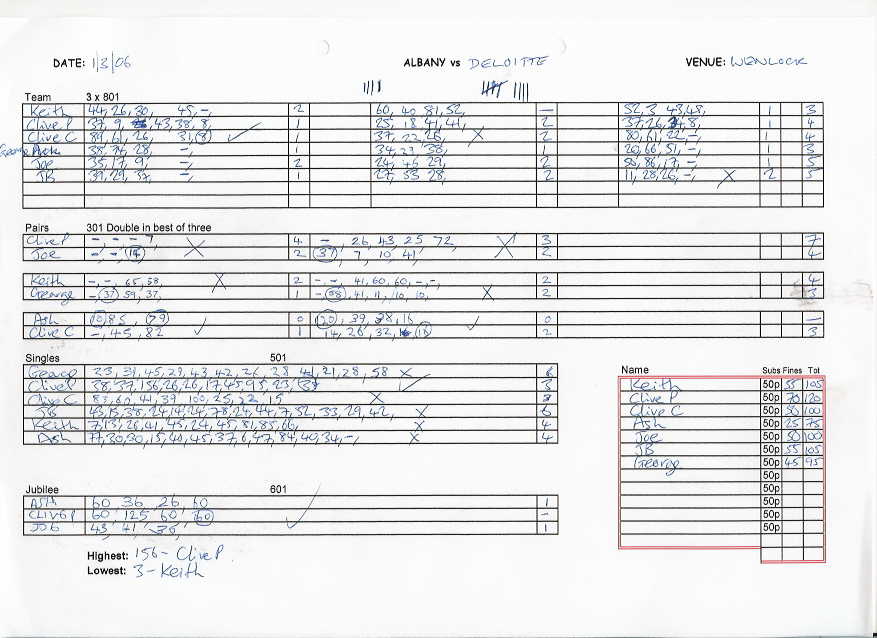 DATE: 1/3/06 ALBANY vs DELOITTE VENUE: WENLOCK
Team 3 x 801
Keith 44, 26, 30, 45, -, 2 60, 40 81, 52, — 52, 3 43, 48, 1 3
Clive P 37, 9, 43, 38, 8, 1 25, 18 41, 41, 2 37, 26, 8, 1 4
Clive C 6, 26, 31, (8) ✓ 1 37, 22 26, X 2 80, 61, 22, -, 1 4
George 38, 28, -, 1 34, 27, 38, 1 20, 66, 51, -, 1 3
Joe 35, 17, 9, -, 2 24, 46 29, 2 86, 17, -, 1 5
JB 39, 29, 37, -, 1 27, 53 28, 2 11, 28, 26, -, X 2 5
Pairs 301 Double in best of three
Clive P -, -, -, 7, X 4 -, 26, 43, 25 72, X 3 7
Joe -, -, (14) 2 (37), 7, 10, 41, 2 4
Keith -, -, 65, 58, X 2 -, -, 41, 60, 60, -, -, 2 4
George -, (37) 59, 37, 1 - (58), 41, 11, 10, 10, X 2 3
Ash (10), 85, (79) ✓ 0 (20), 39, 28, 16 ✓ 0 —
Clive C -, 45, 82 1 14, 26, 32, (18) 2 3
Singles 501
George 23, 31, 45, 29, 43, 42, 26, 28 21, 28, 58 X 6
Clive P 28, 37, 156, 26, 26, 17, 45, 95, 23, ✓ 3
Clive C 83, 60, 41, 39, 100, 25, 22, 15 X
JB 43, 15, 38, 24, 14, 24, 78, 24, 44, 7, 52, 33, 29, 42, X 6
Keith 7, 13, 26, 41, 45, 24, 45, 81, 85, 66, X 4
Ash 77, 30, 30, 15, 40, 45, 37, 6, 47, 84, 49, 34, -, X 4
Name Subs Fines Tot
Keith 50p 55 105
Clive P 50p 70 120
Clive C 50p 50 100
Ash 50p 25 75
Joe 50p 50 100
JB 50p 55 105
George 50p 45 95
50p
50p
50p
50p
50p
Jubilee 601
ASH 60 36 26, 60 1
CLIVE P 60, 125, 60, (60) ✓ -
JOE 43, 41, 36, 1
Highest: 156 - Clive P
Lowest: 3 - Keith